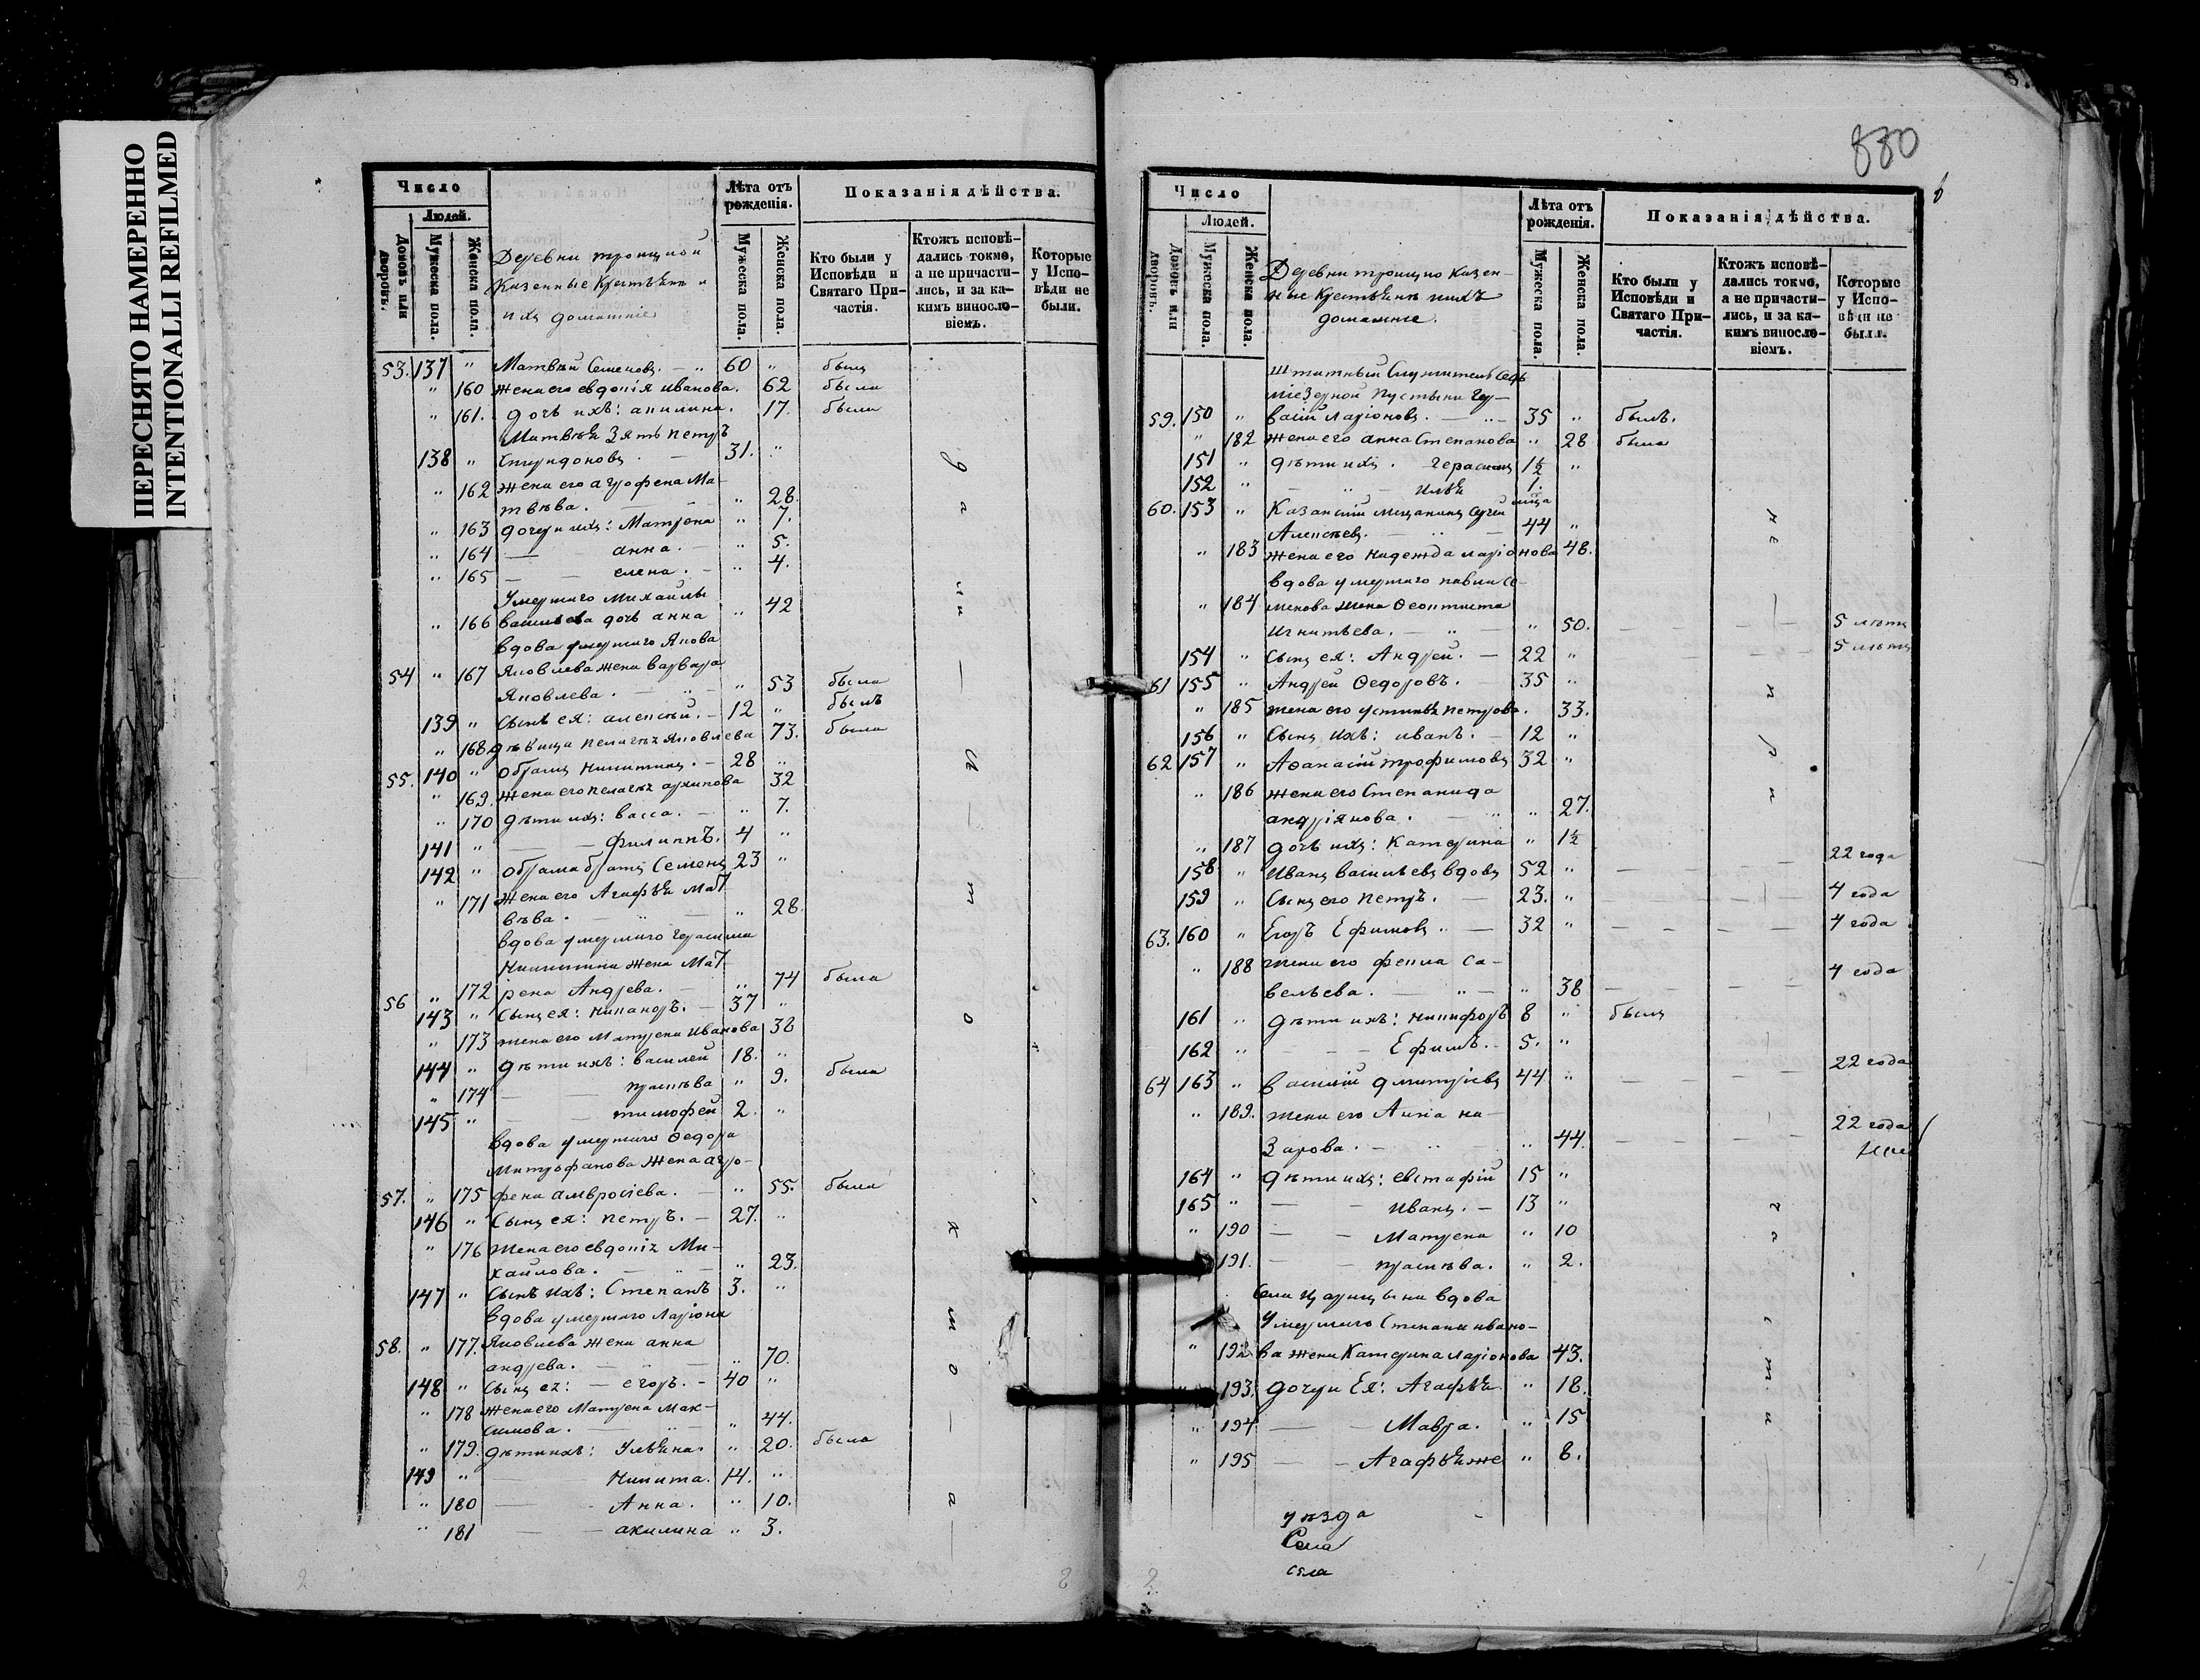 ПЕРЕСНЯТО НАМЕРЕННО
INTENTIONALLI REFILMED
Число
Людей.
Домовъ или дворовъ.
Мужеска пола.
Женска пола.
Деревни троицкой
Казенные Крестьяне и
ихъ домашніе
Лѣта отъ рожденія.
Мужеска пола.
Женска пола.
Показанія дѣйства.
Кто были у Исповѣди и Святаго Причастія.
Ктожъ исповѣдались токмо, а не причастились, и за какимъ винословіемъ.
Которые у Исповѣди не были.
53. 137 " Матвѣй Семеновъ. — " 60 " былъ
" 160 жена его евдокія иванова. 62 была
" 161. дочь ихъ: акилина. 17. была
Матвѣя Зять петръ
138 " Спиридоновъ — 31. "
" 162 жена его агрофена Ма-
твѣва. " 28.
" 163 дочери ихъ: Матрена " 7.
" 164 — анна. — " 5.
" 165 — — елена. - " 4.
Умершаго Михаилы
" 166 васильева дочь анна " 42
вдова умершаго Якова
54 " 167 Яковлева жена варвара
Яковлева. — " — " 53 была
139 " Сынъ ея: алексѣй. — 12 " былъ
" 168 дѣвица пелагея яковлева 73. была
55. 140 " обрамъ никитинъ. — 28 "
" 169 жена его пелагея архипова 32
" 170 дѣти ихъ: васса. — " 7.
141 " — — филиппъ. 4 "
142 " обрама братъ Семенъ 23 "
" 171 жена его Агафья Мат-
вѣва. — " — " 28.
вдова умершаго герасима
Никитина жена Мат-
56 " 172 рена Андрева. — " 74 была
143 " Сынъ ея: никаноръ. — 37 "
" 173 жена его Матрена иванова 38
144 " дѣти ихъ: василей 18. "
" 174 — — прасковья " 9. была
145 " — — тимофей 2. "
вдова умершаго Ѳедора
Митрофанова жена агро-
57. " 175 фена амвросіева. — " 55. была
146 " Сынъ ея: петръ. — 27. "
" 176 жена его евдокія Ми-
хайлова. — " — " 23.
147 " Сынъ ихъ: Степанъ 3. "
вдова умершаго Ларіона
58. " 177. Яковлева жена анна
андрева. — " — " 70.
148 " Сынъ ея: — егоръ. - 40 "
" 178 жена его Матрена Мак-
симова. — " — " 44.
" 179. дѣти ихъ: Ульяна. " 20. была
149 " — Никита. 14. "
" 180 — - Анна. " 10.
" 181 — - акилина " 3.
880
Число
Людей.
Домовъ или дворовъ.
Мужеска пола.
Женска пола.
Деревни троицко Казен-
ные Крестьяне и ихъ
домашніе.
Лѣта отъ рожденія.
Мужеска пола.
Женска пола.
Показанія дѣйства.
Кто были у Исповѣди и Святаго Причастія.
Ктожъ исповѣдались токмо, а не причастились, и за какимъ винословіемъ.
Которые у Исповѣди не были.
Штатный Служитель Седь
міезерной пустыни
59. 150 " ларіоновъ. — " — 35 " былъ.
" 182 жена его анна Степанова " 28 была
151 " дѣти ихъ. Герасимъ 1½ "
152 " — " — илья 1.
60. 153 " Казанскій мещанинъ
Алексѣевъ. — " — 44 "
" 183 жена его надежда ларіонова 48.
вдова умершаго павла Се-
" 184 менова жена Ѳеоктиста
игнатьева. — " — " 50. 5 летъ
154 " Сынъ ея: Андрей. — 22 " 5 летъ
61 155 " Андрей Ѳедоровъ. — 35 "
" 185 жена его устинья петрова. 33.
156 " Сынъ ихъ: иванъ. — 12 "
62 157 " Аѳанасій трофимовъ 32 "
" 186 жена его Степанида
андріянова. — " " 27.
" 187 дочь ихъ: Катерина " 1½
158 " Иванъ васильевъ вдовъ 52 " 22 года
159 " Сынъ его петръ. — 23. " 4 года
63. 160 " Егоръ Ефимовъ. — 32 " 4 года
" 188 жена его фекла Са-
вельева. — " — " 38 4 года
161 " дѣти ихъ: никифоръ 8 " былъ
162 " — — — Ефимъ. - 5. "
64 163 " василій дмитріевъ 44 " 22 года
" 189. жена его Анна на-
зарова. — " — " 44. 22 года
164 " дѣти ихъ: евстафій 15 "
165 " — — иванъ. — 13 "
" 190 — — Матрена " 10
" 191. — — прасковья. " 2.
села царицына вдова
умершаго Степана ивано-
" 192 ва жена Катерина ларіонова 43.
" 193. дочери Ея: Агафья " 18.
" 194 — — Мавра. " 15
" 195 — — Агафья же " 8.
уѣзда
Села
села